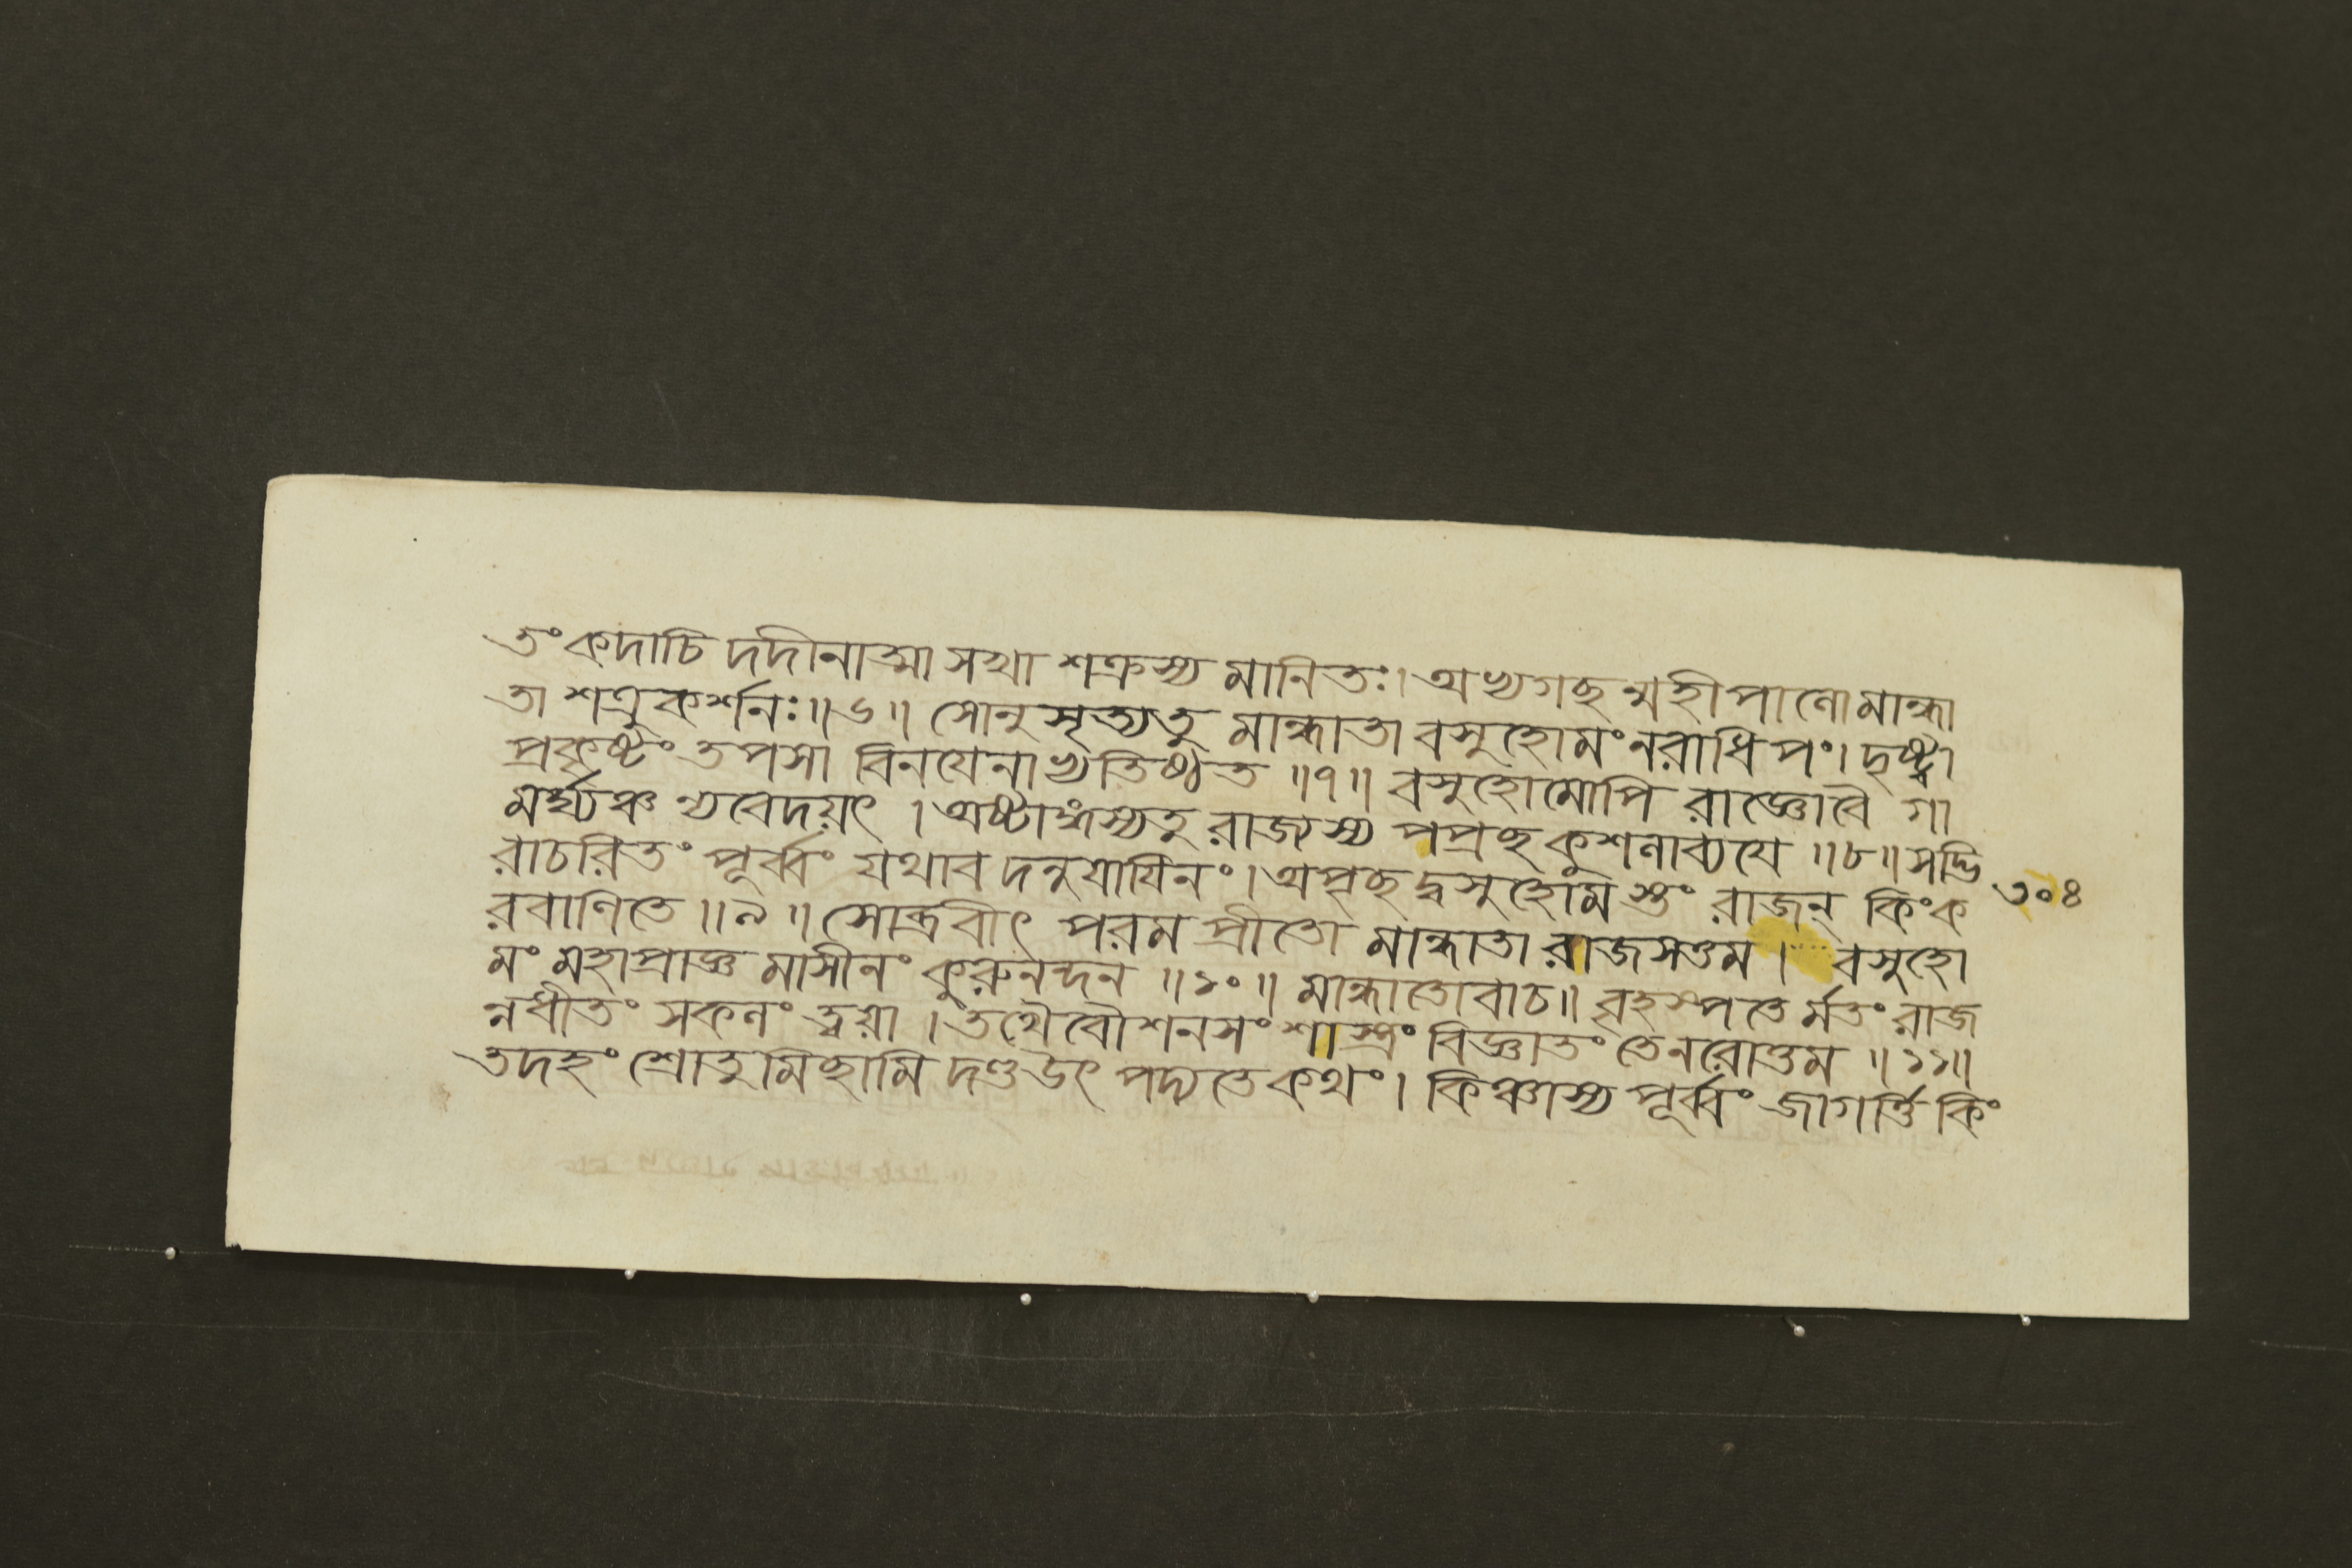 তং কদাচি দদীনাত্মা সখা শক্রস্য মানিতঃ। অভ্যগছ ন্মহীপালো মান্ধা
তা শত্রুকর্শনঃ॥৬॥ সোনু সৃত্যতু মান্ধাতা বসুহোমং নরাধিপং। দৃষ্ট্বা
প্রকৃষ্টং তপসা বিনযেনাভ্যতিষ্ঠত ॥৭॥ বসুহোমোপি রাজ্ঞোবৈ গা
মর্ঘ্যঞ্চ ন্যবেদয়ৎ । অষ্টাঙ্গস্যতু রাজ্যস্য পপ্রছ কুশলাব্যযে ॥৮॥ সদ্ভি
রাচরিতং পূর্ব্বং যথাব দনুযাযিনং। অপৃছ দ্বসুহোমস্তং রাজন্ কিংক ৩০৪
রবাণিতে ॥৯॥ সোব্রবীৎ পরম প্রীতো মান্ধাতা রাজসত্তম । বসুহো
মং মহাপ্রাজ্ঞ মাসীনং কুরুনন্দন ॥১০॥ মান্ধাতোবাচ॥ বৃহস্পতে র্মতং রাজ
ন্নধীতং সকলং ত্বয়া । তথৈবৌশনসং শাস্ত্রং বিজ্ঞাতং তেনরোত্তম ॥১১॥
তদহং শ্রোতুমিছামি দণ্ডউৎ পদ্যতে কথং। কিঞ্চাস্য পূর্ব্বং জাগর্ত্তি কিং